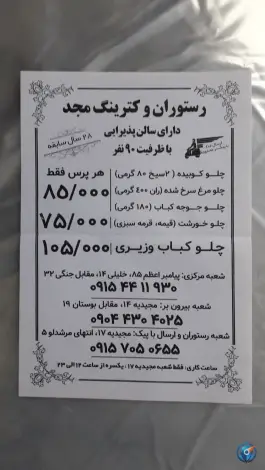 رستوران و کترینگ مجد
دارای سالن پذیرایی
با ظرفیت ۹۰ نفر
۲۸ سال سابقه
چلو کوبیده (۲سیخ ۸۰ گرمی)
چلو مرغ سرخ شده (ران ۴۰۰ گرمی)
چلو جوجه کباب (۱۸۰ گرمی)
هر پرس فقط
۸۵/۰۰۰
چلو خورشت (قیمه، قرمه سبزی)
۷۵/۰۰۰
چلو کباب وزیری
۱۰۵/۰۰۰
شعبه مرکزی: پیامبر اعظم ۸۵، خلیلی ۱۴، مقابل جنگی ۳۲
۰۹۱۵ ۴۴ ۱۱ ۹۳۰
شعبه بیرون بر: مجیدیه ۱۴، مقابل بوستان ۱۹
۰۹۰۴ ۴۳۰ ۴۰۲۵
شعبه رستوران و ارسال با پیک: مجیدیه ۱۷، انتهای مرشدلو ۵
۰۹۱۵ ۷۰۵ ۰۶۵۵
ساعت کاری: فقط شعبه مجیدیه ۱۷: یکسره از ساعت ۱۲ الی ۲۳